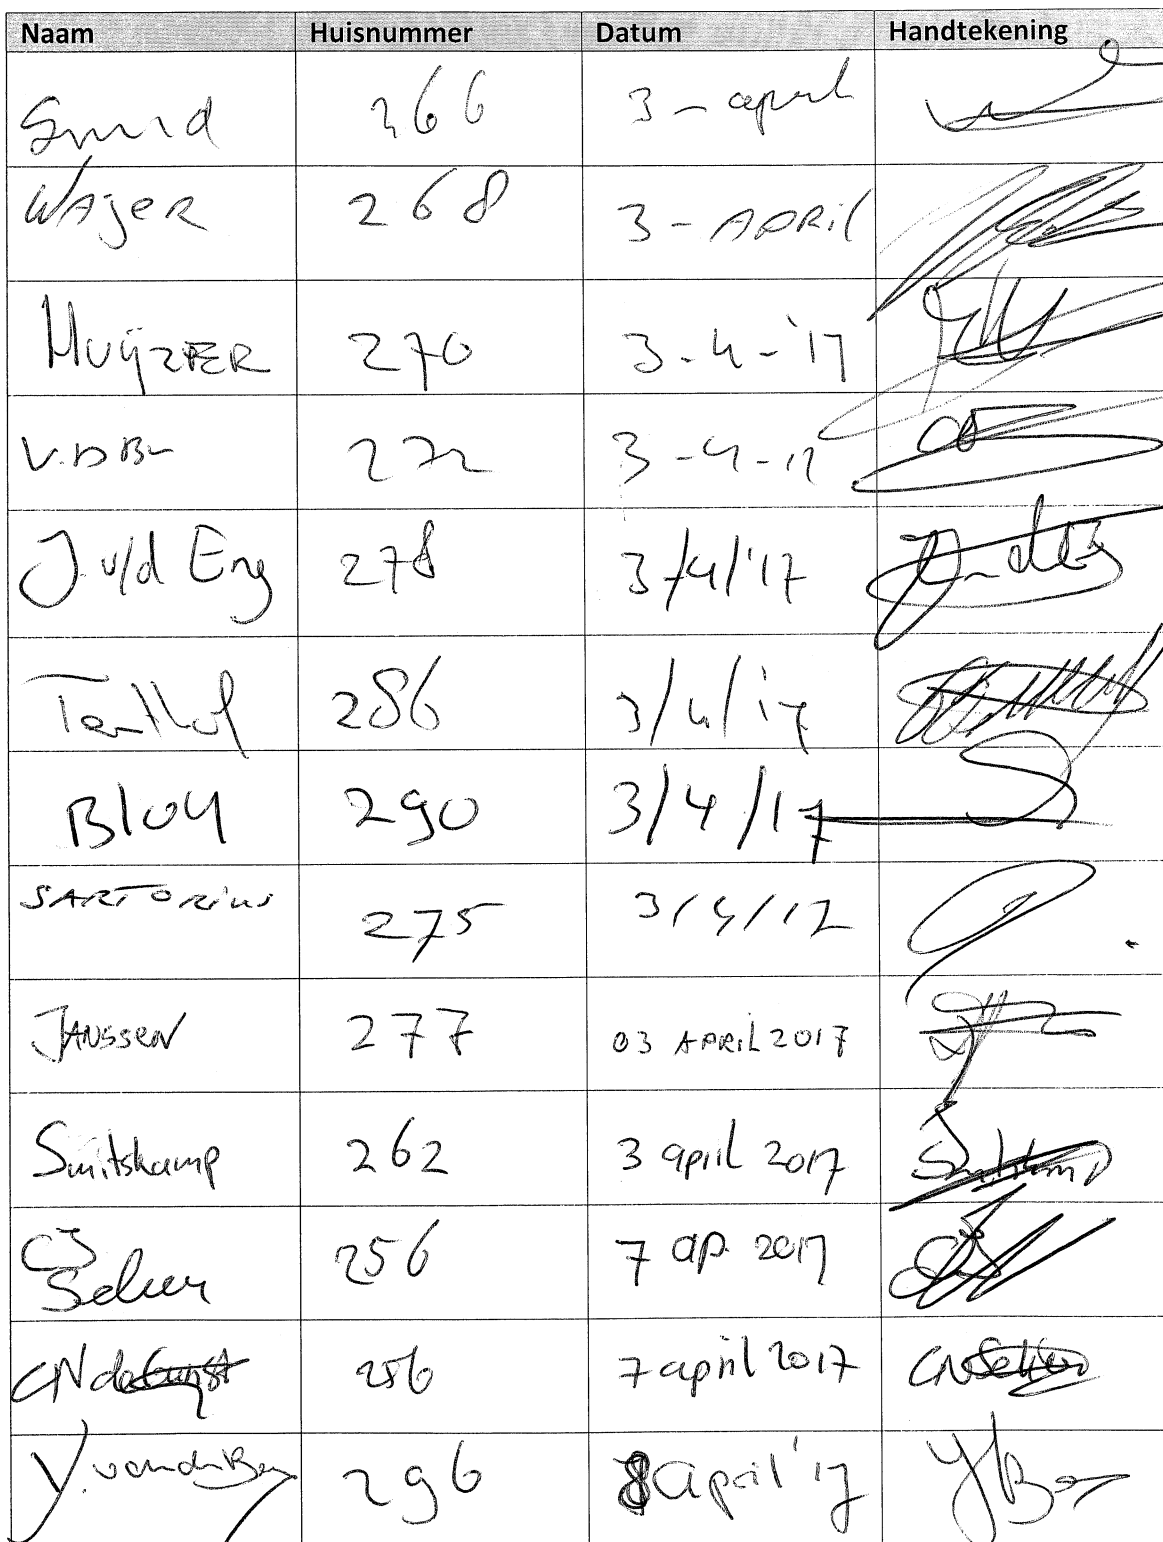 Naam Huisnummer Datum Handtekening
Smid 266 3 - april
WAJER 268 3 - APRIL
MUIJZER 270 3 - 4 - '17
272 3 - 4 - 17
J. v/d Eng 278 3/4/'17
286 3/4/'17
Blou 290 3/4/17
SARTORIUS 275 3/4/17
JANSSEN 277 03 APRIL 2017
Smitskamp 262 3 april 2017
CJ
256 7 ap. 2017
CN de 256 7 april 2017
Y. van den Berg 296 8 april '17